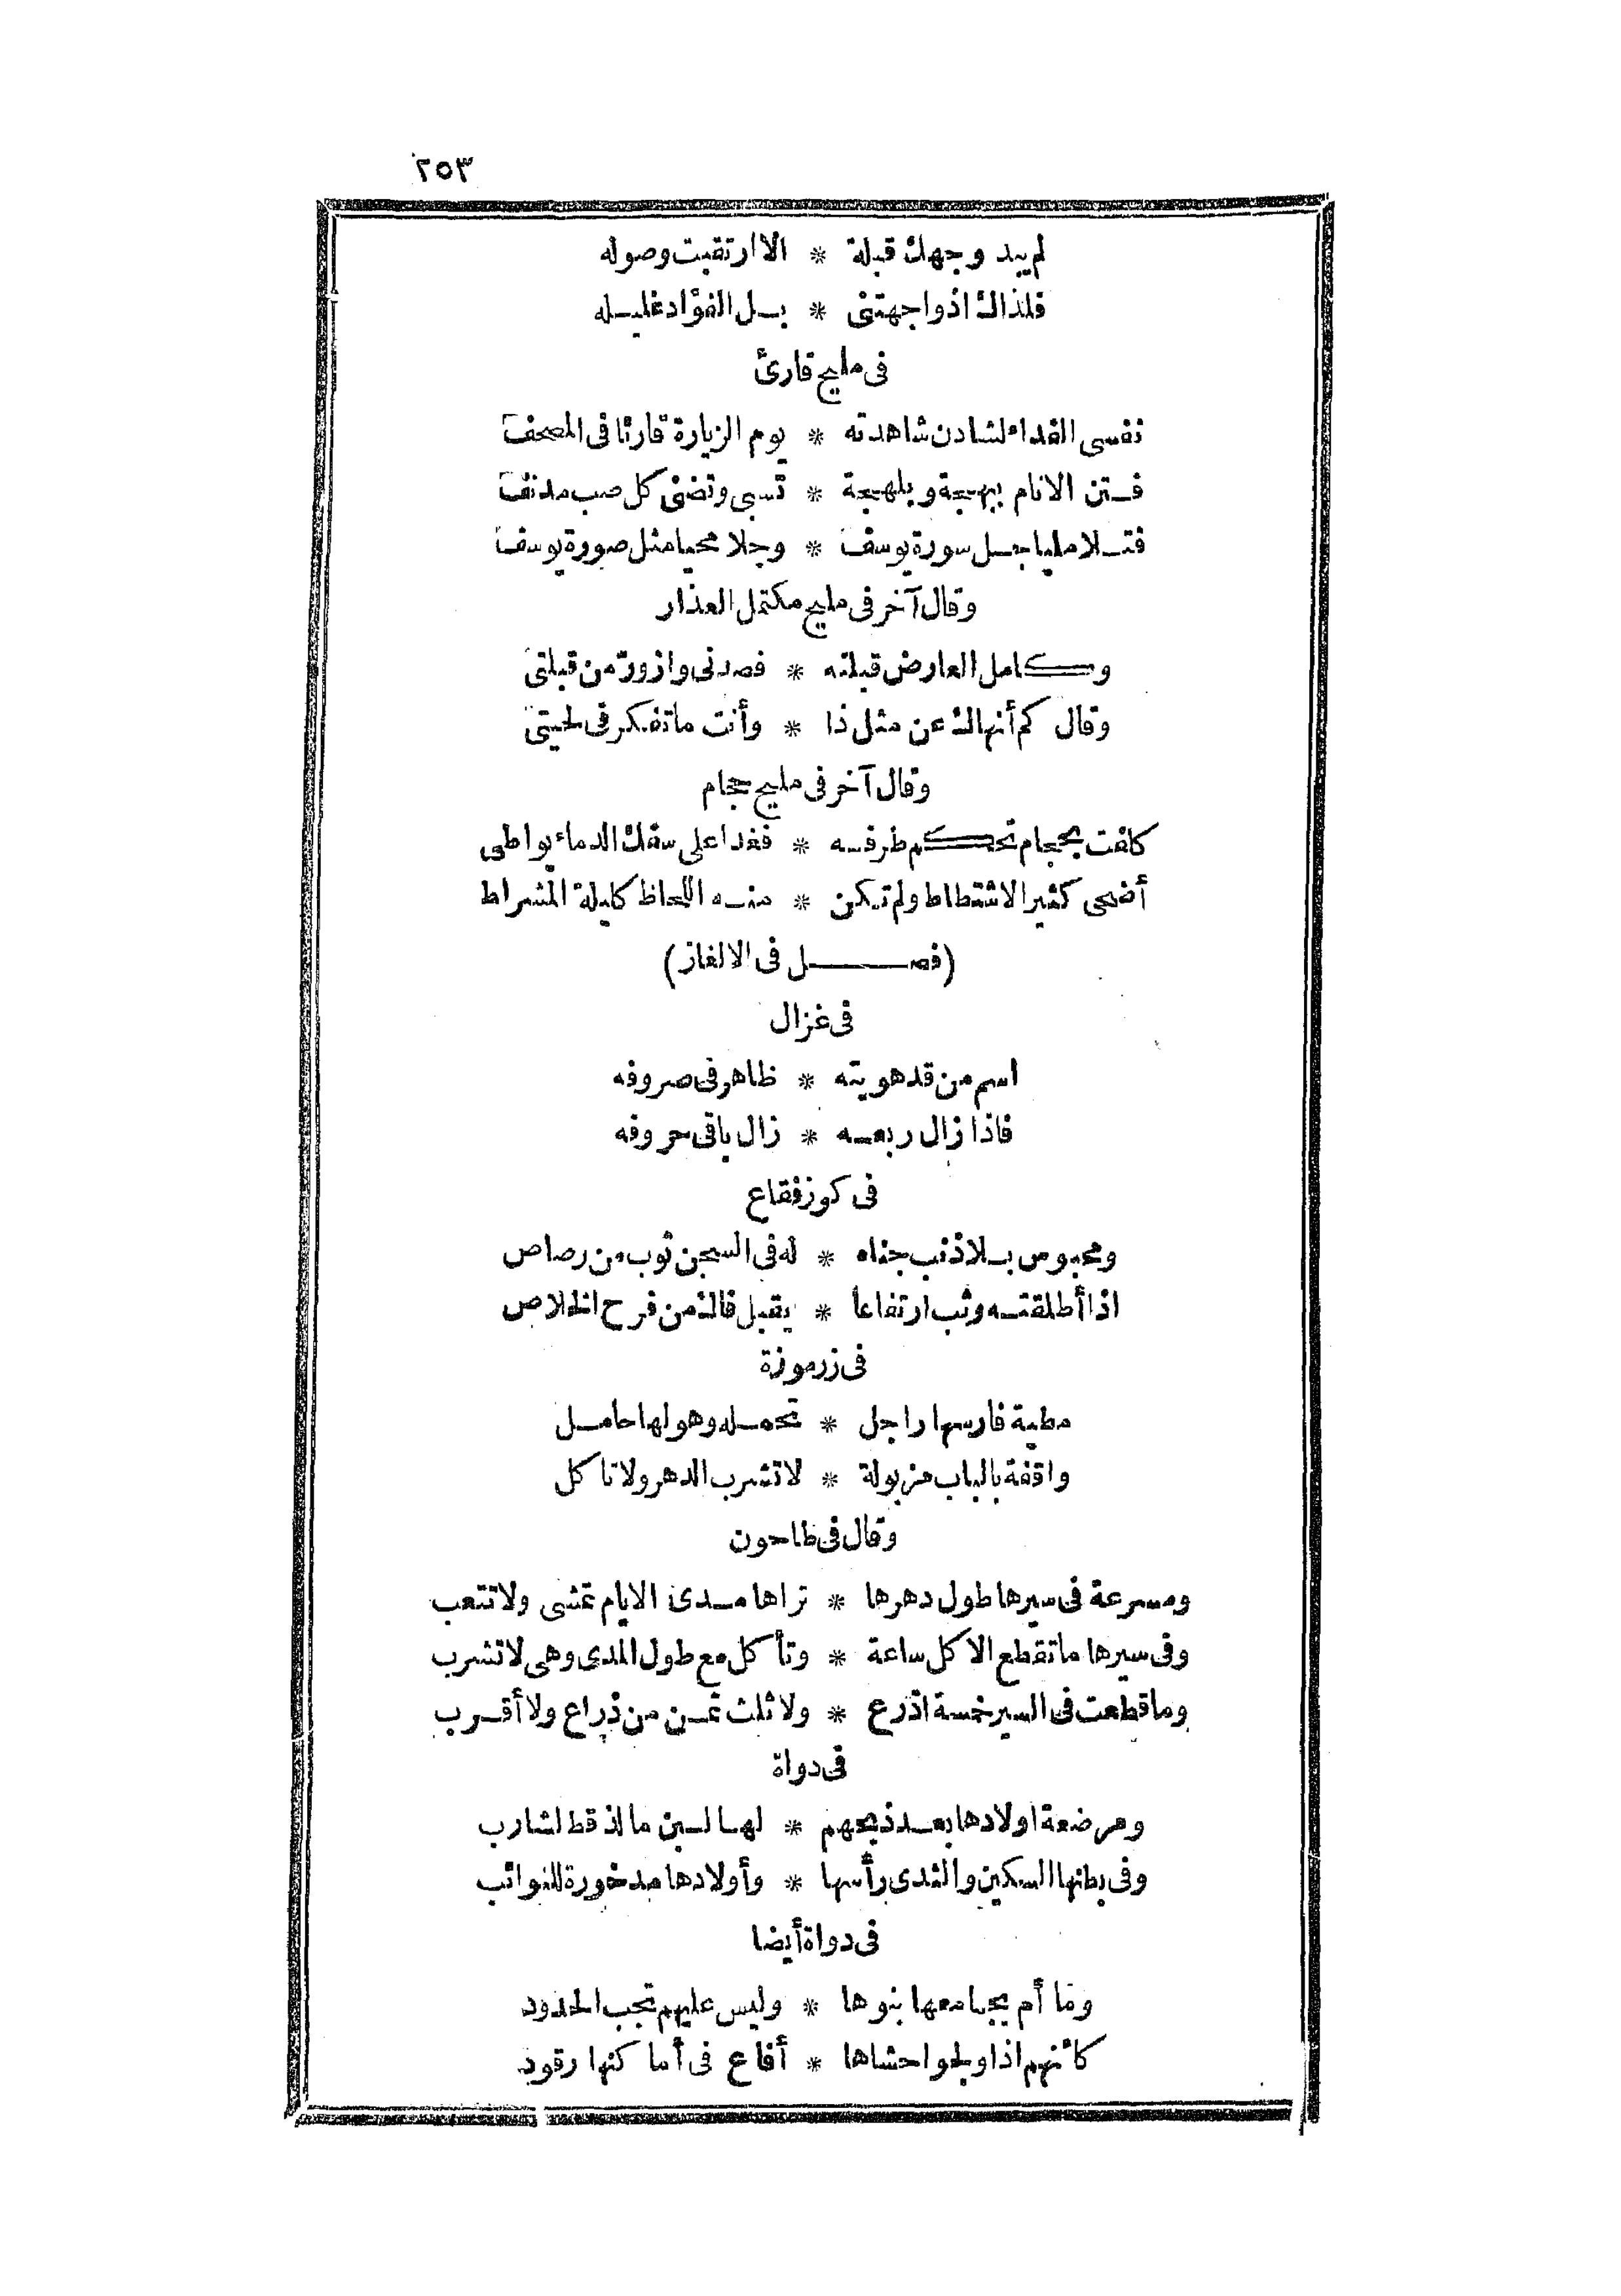 ٢٥٣
لم يبد وجهك قبلة * الا ارتقبت وصوله
فلذاك اذ واجهتنى * بل الفؤاد غليله
فى مليح قارئ
نفسى الفداء لشادن شاهدته * يوم الزيارة قارئا فى المصحف
فتن الانام ببهجة وبلهجة * تسبى وتضنى كل صب مدنف
فتلا مليا جل سورة يوسف * وجلا محيا مثل صورة يوسف
وقال آخر فى مليح مكتمل العذار
وكامل العارض قبلته * فصدنى وازورّ من قبلتى
وقال كم أنهاك عن مثل ذا * وأنت ما تفكر فى لحيتى
وقال آخر فى مليح حجام
كلفت بحجام تحكم طرفه * فغدا على سفك الدماء يواطى
أضحى كثير الاشتطاط ولم تكن * منه اللحاظ كليلة المشراط
(فصل فى الالغاز)
فى غزال
اسم من قد هويته * ظاهر فى صروفه
فاذا زال ربعه * زال باقى حروفه
فى كوز فقاع
ومحبوس بلا ذنب جناه * له فى السجن ثوب من رصاص
اذا أطلقته وثب ارتفاعا * يقبل فاك من فرح الخلاص
فى زرموزة
مطية فارسها راجل * تحمله وهو لها حامل
واقفة بالباب مزبولة * لا تشرب الدهر ولا تاكل
وقال فى طاحون
ومسرعة فى سيرها طول دهرها * تراها مدى الايام تمشى ولا تتعب
وفى سيرها ما تقطع الاكل ساعة * وتأكل مع طول المدى وهى لا تشرب
وما قطعت فى السير خمسة اذرع * ولا ثلث ثمن من ذراع ولا أقرب
فى دواة
ومرضعة اولادها بعد ذبحهم * لها لبن ما لذ قط لشارب
وفى بطنها السكين والثدى رأسها * وأولادها مدخورة للنوائب
فى دواة أيضا
وما أم يجامعها بنوها * وليس عليهم تجب الحدود
كأنهم اذا ولجوا حشاها * أفاع فى أماكنها رقود